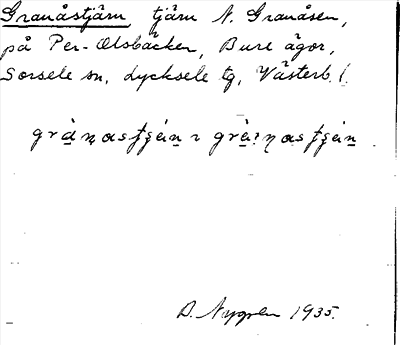 Granåstjärn tjärn N. Granåsen,
på Per-Olsbäcken, Bure ägor,
Sorsele sn, Lycksele tg, Västerb. l.
D. Nygren 1935.